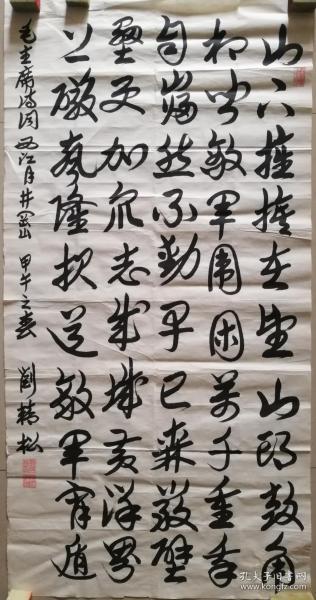 山下旌旗在望山头鼓角
相闻敌军围困万千重我
自岿然不动早已森严壁
垒更加众志成城黄洋界
上炮声隆报道敌军宵遁
毛主席诗词西江月井冈山 甲午之春 刘椿松
孔夫子旧书网
www.kongfz.com